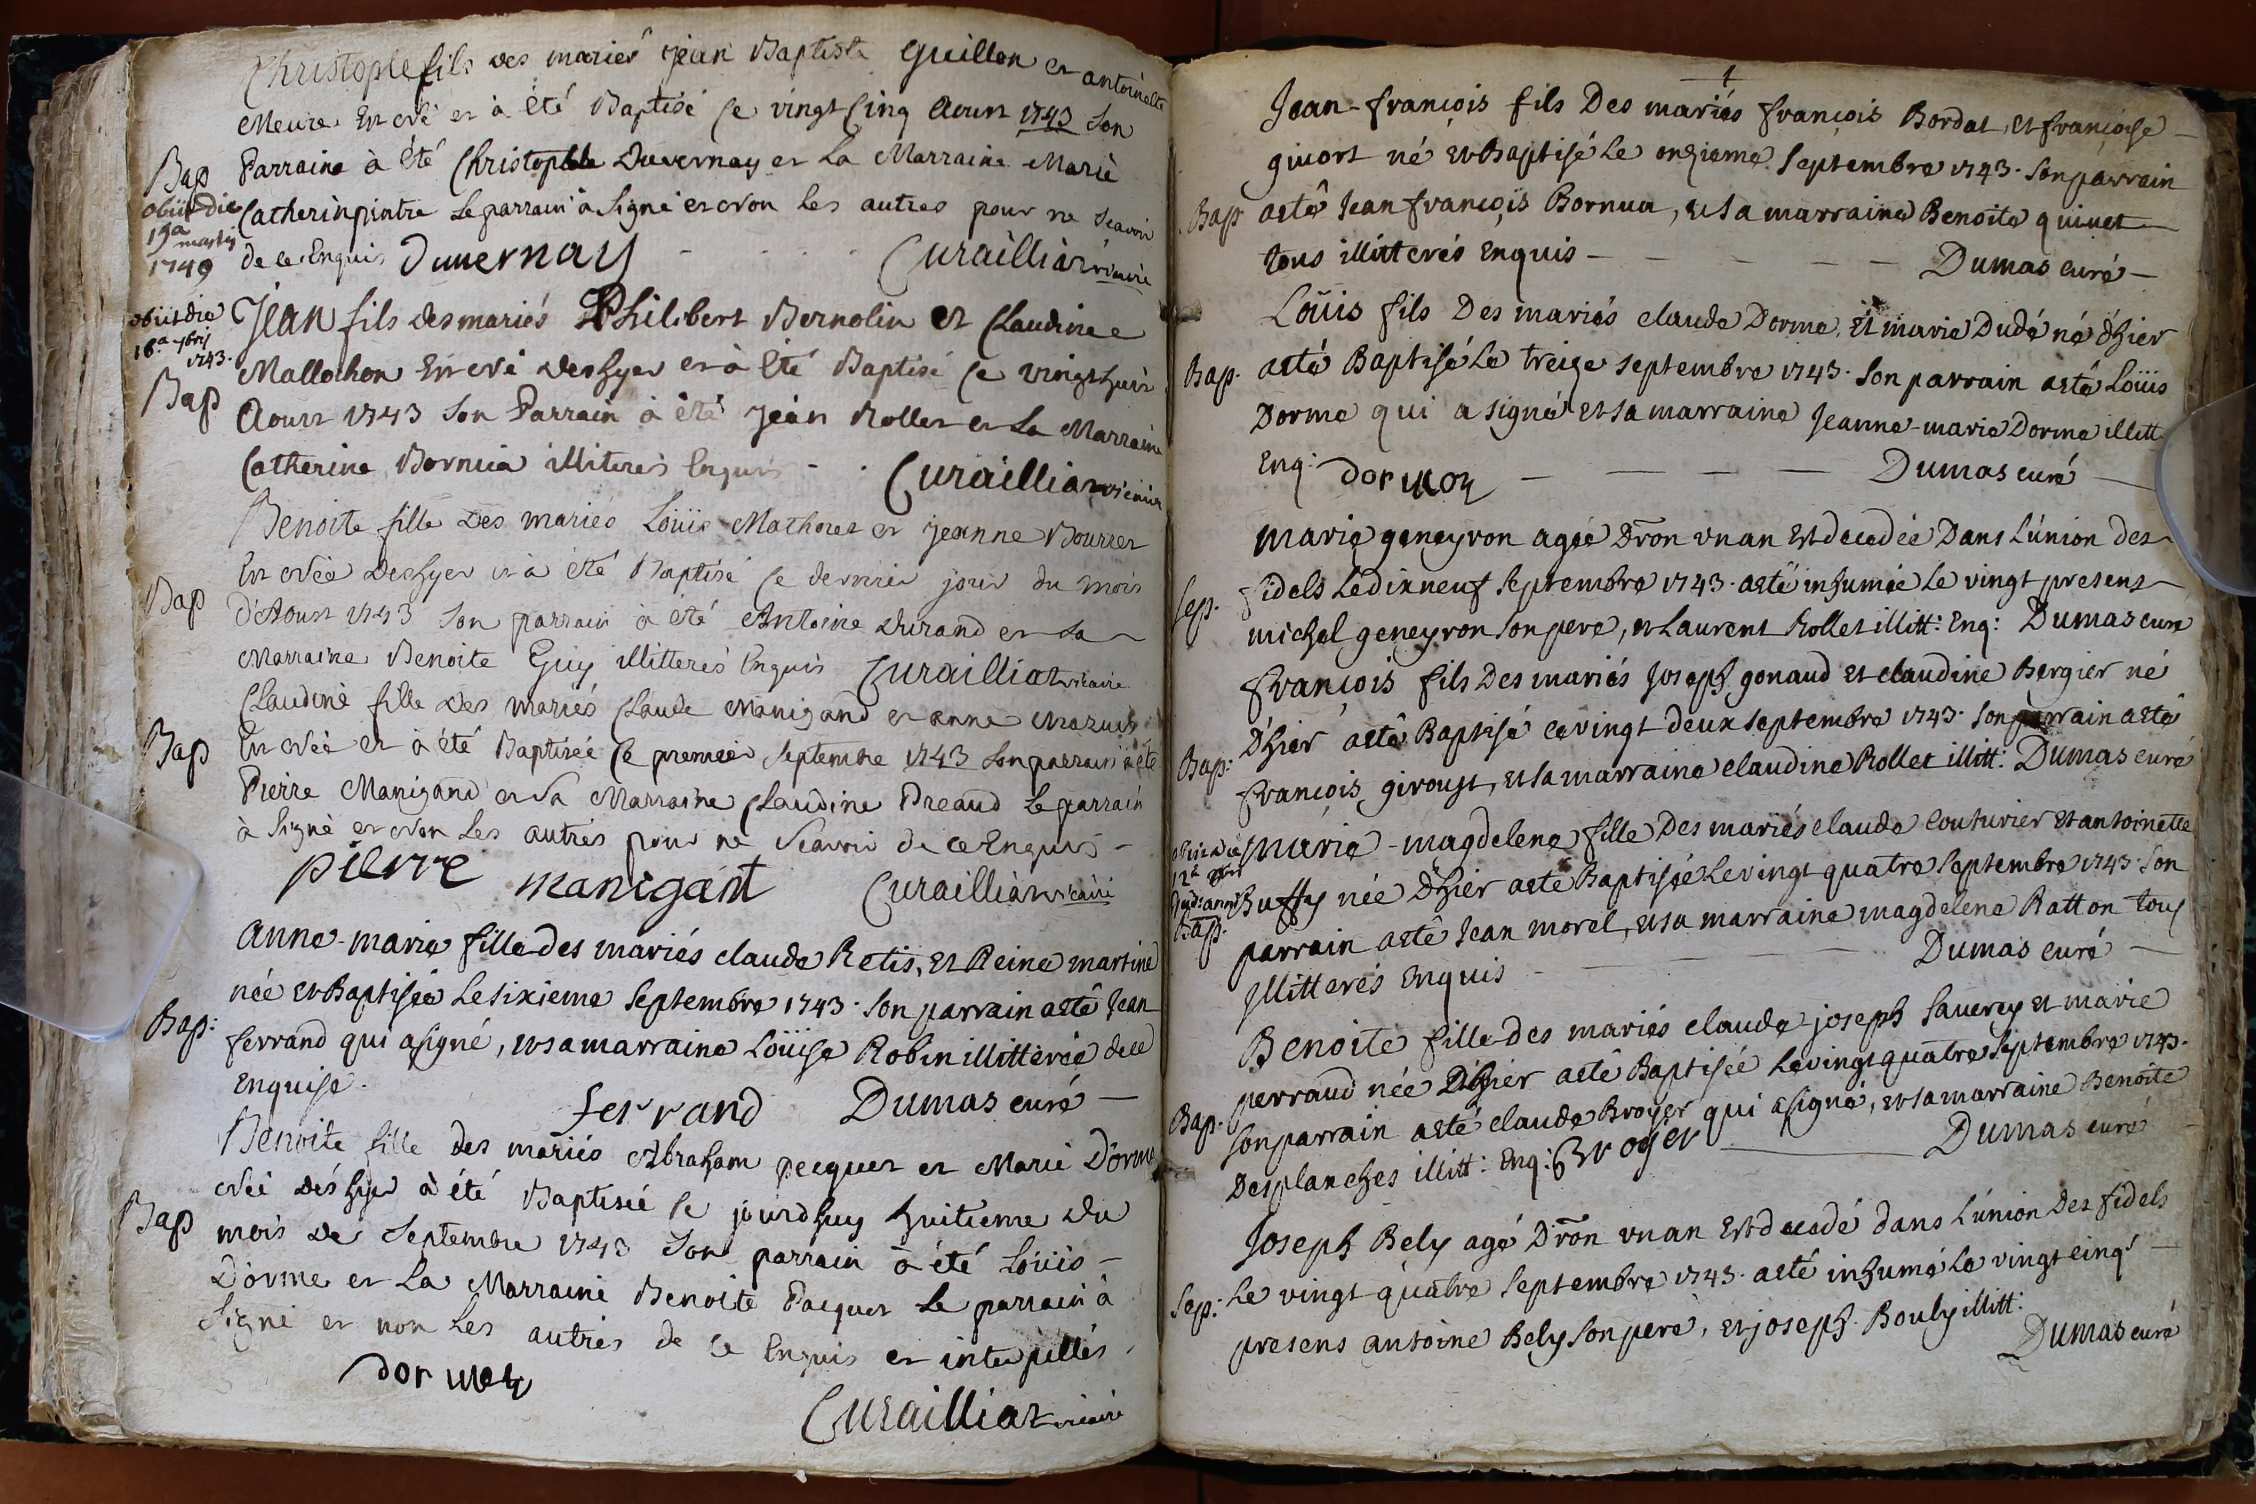 Christople fils des mariés Jean Baptiste Guillon et antoinette
Meure Est né et à été Baptisé ce vingt cinq Aoust 1743 Son
Bap Parraine à été Christophle Duvernay et La Marraine Marie
obiit die Catherin pintre Le parrain à Signé et non Les autres pour ne Scavoir
19a martij
1749 de ce Enquis Duvernay - - - - Curailliat vicaire
obiit die Jean fils des mariés Philibert Bernolin et Claudine
16.a 7bris
1743. Mallochon Est né deshyer et à Eté Baptisé ce vingt huit
Bap Aoust 1743 Son Parrain à été Jean Rollet et La Marraine
Catherine Bornua illiterés Enquis - - Curailliat vicaire
Benoite fille des mariés Loüis Mathoret et Jeanne Bourret
Est née deshyer et à été Baptisé ce dernier jour du mois
Bap D'Aoust 1743 Son parrain à été Antoine Durand et Sa
Marraine Benoite Guy illitterés Enquis Curailliat vicaire
Claudine fille des mariés Claude Manigand et anne Mazuis
Bap Est née et à été Baptisée ce premier Septembre 1743 Son parrain à été
Pierre Manigand et Sa Marraine Claudine Preaud Le parrain
à Signé et non Les autres pour ne Scavoir de ce Enquis -
pierre manigant Curailliat vicaire
Anne-marie fille des mariés claude Retis, et Reine martine
née et Baptisée Le sixieme Septembre 1743. Son parrain a eté Jean
Bap: ferrand qui a signé, et sa marraine Loüise Robin illitterée de ce
Enquise.
ferrand Dumas curé -
Benoite fille des mariés Abraham pecquet et Marie Dorme
née dés hyer à été Baptisée ce jourdhuy huitieme du
Bap mois de Septembre 1743 Son parrain à été Loüis -
Dorme et La Marraine Benoite Pacquet Le parrain à
Signé et non Les autres de ce Enquis et interpellés
dormoy
Curailliat vicaire
1
Jean-françois fils Des mariés françois Bordat, et françoise
givort né et Baptisé Le onzieme Septembre 1743. Son parrain
Bap: a eté Jean françois Bornua, et sa marraine Benoite quivet
tous illitterés Enquis - - - - - Dumas curé -
Loüis fils Des mariés claude Dorme, et marie Dudé né d'hier
Bap. a eté Baptisé Le treize septembre 1743. Son parrain a eté Loüis
Dorme qui a signé et sa marraine Jeanne-marie Dorme illitt.
Enq: dormoy - - - Dumas curé -
Marie geneyron agée Dron un an Est decedée Dans L'union des
Sep. fidels Le dix neuf Septembre 1743. a eté inhumée Le vingt presens
michel geneyron Son pere, et Laurent Rollet illitt: Enq: Dumas curé
françois fils Des mariés Joseph gonaud et claudine Bergier né
D'hier a eté Baptisé ce vingt deux septembre 1743. Son parrain a eté
Bap: françois giroust, et sa marraine claudine Rollet illitt: Dumas curé
obiit die Marie-magdelene fille Des mariés claude Couturier et antoinette
12a
Buffy née D'hier a eté Baptisée Le vingt quatre Septembre 1743. Son
Bap. parrain a eté Jean morel, et sa marraine magdelene Ratton tous
Illitterés Enquis - - - - - Dumas curé -
Benoite fille des mariés claude-joseph Saverey et marie
perraud née D'hier a eté Baptisée Le vingt quatre Septembre 1743.
Bap. Son parrain a eté claude Broyer qui a signé, et sa marraine Benoite
Desplanches illitt: Enq: Broyer - Dumas curé
Joseph Bely agé Dron un an Est decedé dans L'union Des fidels
Sep: Le vingt quatre Septembre 1743. a eté inhumé Le vingt cinq
presens antoine Bely Son pere, et joseph Bouly illitt:
Dumas curé